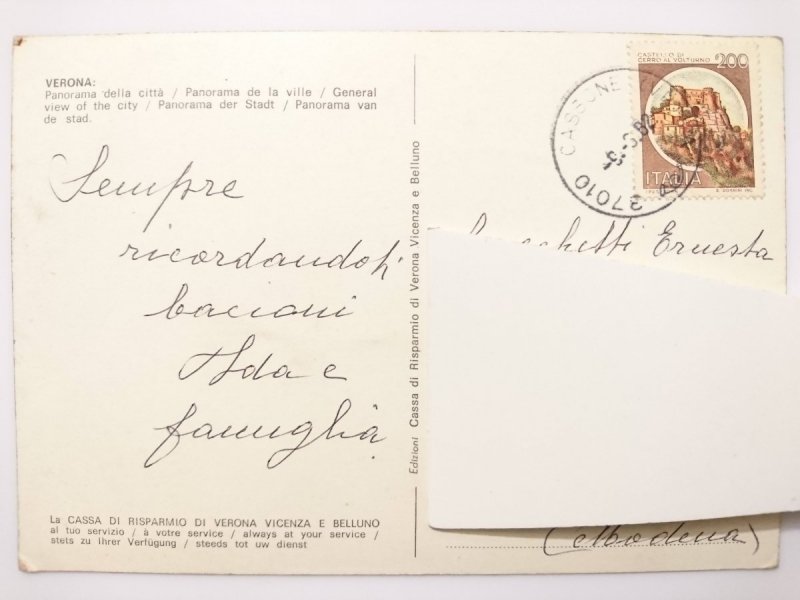 VERONA:
Panorama della città / Panorama de la ville / General
view of the city / Panorama der Stadt / Panorama van
de stad.
Sempre
ricordandoti
bacioni
Ada e
famiglia
La CASSA DI RISPARMIO DI VERONA VICENZA E BELLUNO
al tuo servizio / à votre service / always at your service /
stets zu Ihrer Verfügung / steeds tot uw dienst
Edizioni Cassa di Risparmio di Verona Vicenza e Belluno
CASTELLO DI
CERRO AL VOLTURNO
200
ITALIA
37010 CASSONE
Ernesta
(Modena)